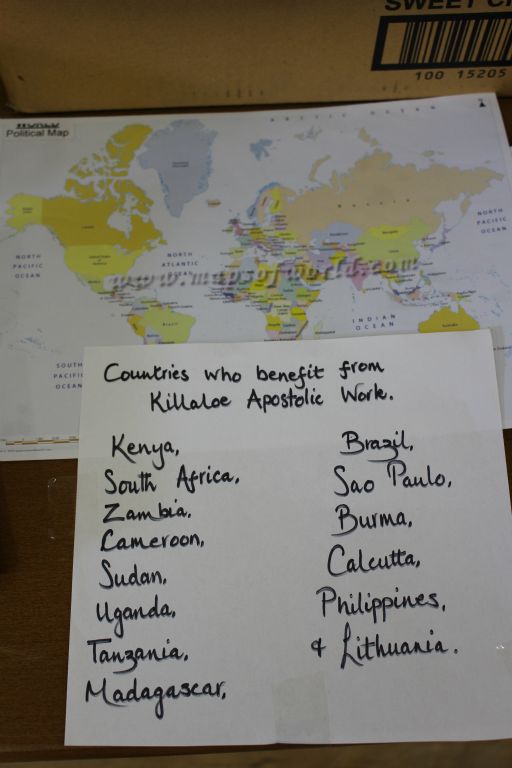 SWEET C
100 15205
Political Map
ARCTIC OCEAN
NORTH
PACIFIC
OCEAN
NORTH
ATLANTIC
OCEAN
NORTH
PACIFIC
OCEAN
www.mapsofworld.com
INDIAN
OCEAN
SOUTH
PACIFIC
OCEAN
Countries who benefit from
Killaloe Apostolic Work.
Kenya,
South Africa,
Zambia,
Cameroon,
Sudan,
Uganda,
Tanzania,
Madagascar,
Brazil,
Sao Paulo,
Burma,
Calcutta,
Philippines,
& Lithuania.